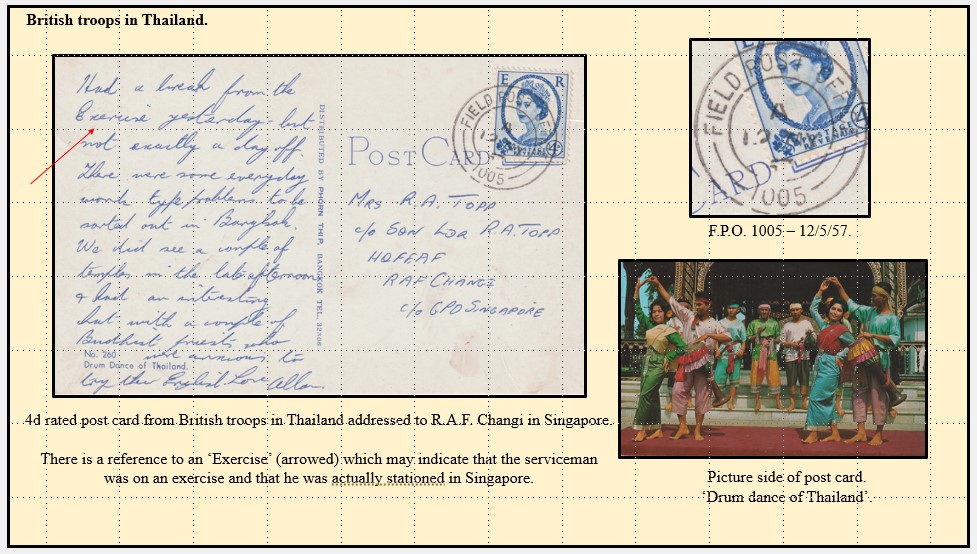 British troops in Thailand.
Had a break from the
Exercise yesterday - but
not exactly a day off.
There were some everyday
work type problems to be
sorted out in Bangkok.
We did see a couple of
temples in the late afternoon
& had an interesting
chat with a couple of
Buddhist priests who
were anxious to
try their English Love Allan
No. 260
Drum Dance of Thailand.
DISTRIBUTED BY PHORN THIP, BANGKOK TEL.
POST CARD
E R
POSTAGE REVENUE
4
FIELD POST OFFICE
1005
MRS R.A. TOPP
c/o SQN LDR R.A. TOPP
HQFEAF
RAF CHANGI
c/o GPO SINGAPORE
4d rated post card from British troops in Thailand addressed to R.A.F. Changi in Singapore.
There is a reference to an ‘Exercise’ (arrowed) which may indicate that the serviceman
was on an exercise and that he was actually stationed in Singapore.
FIELD POST
1005
CARD
REVENUE
4
F.P.O. 1005 – 12/5/57.
Picture side of post card.
‘Drum dance of Thailand’.